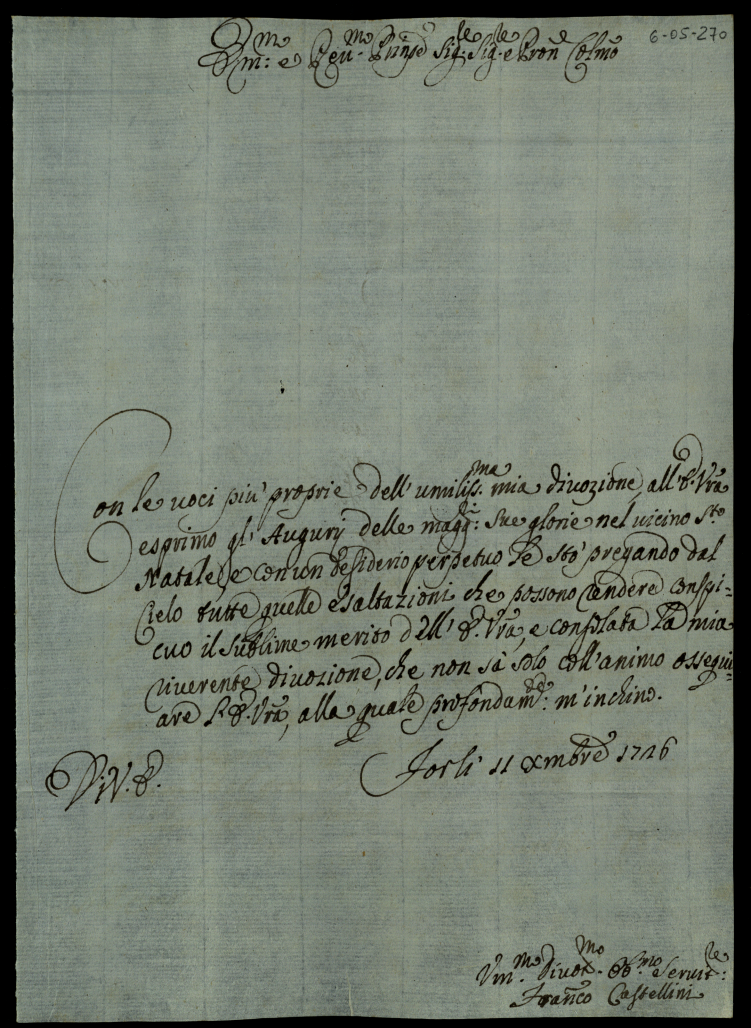 6-05-270
Em:mo e Rev:mo Prinpe Sig:re Sig:re e Pron Colmo
Con le voci più proprie dell'umiliss:ma mia divozione all'E. Vrã
esprimo gl'Augurij delle magg:ri sue glorie nel vicino Sto
Natale, e con un desiderio perpetuo Le stò pregando dal
Cielo tutte quelle esaltazioni che possono rendere conspi=
cuo il sublime merito dell'E. Vrã, e consolata la mia
riverente divozione, che non sà solo coll'animo ossequi=
are l'E. Vrã, alla quale profondam:te m'inchino.
Di V. E.
Forlì 11 Xmbre 1726
Um:mo Divot:mo Ob:mo Servit:re
Franco Castellini